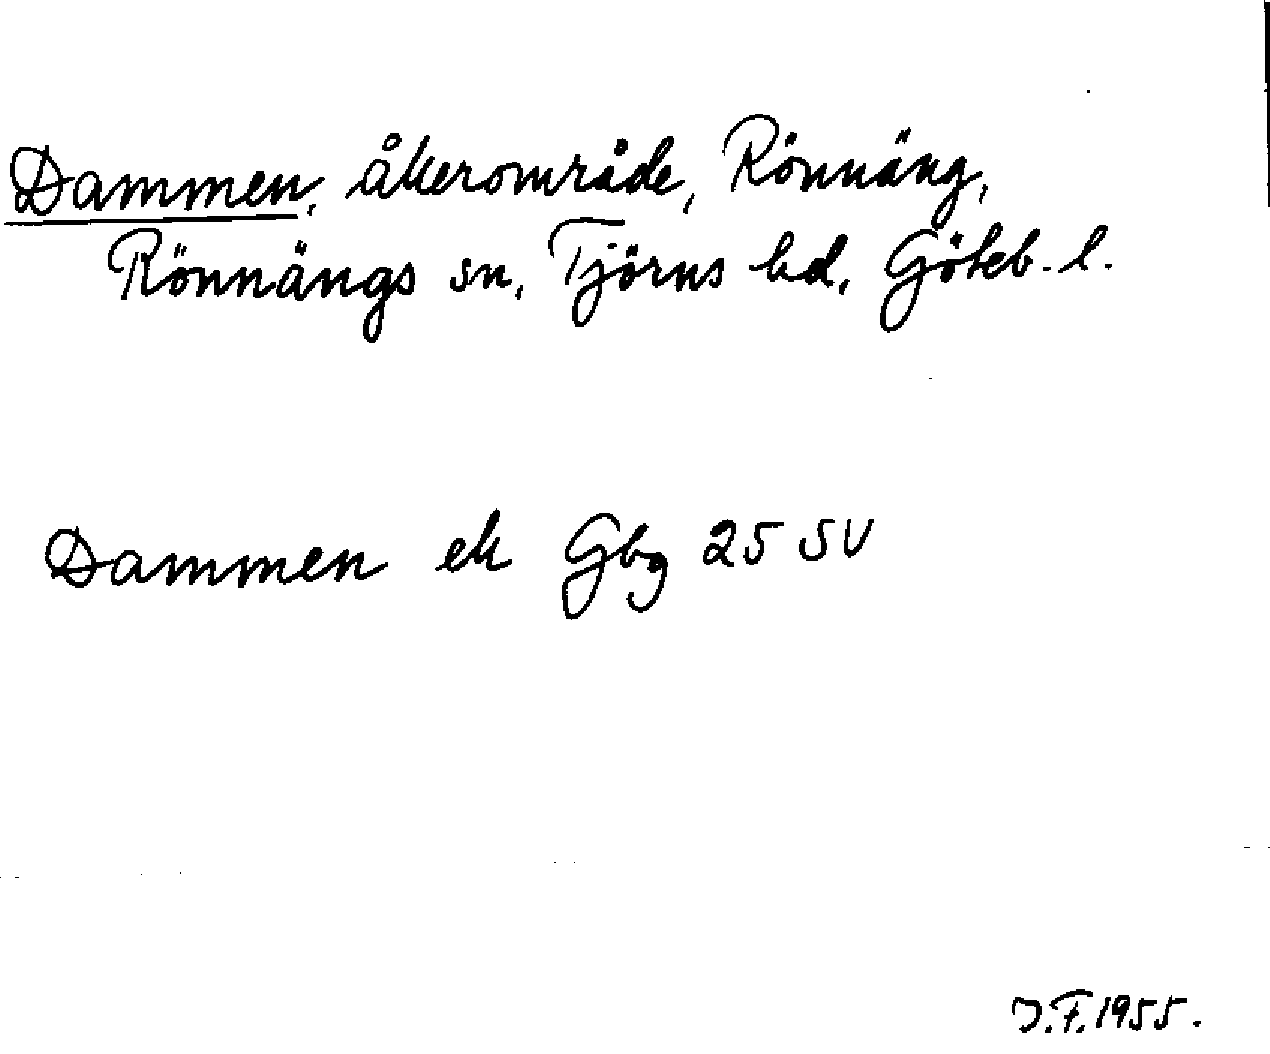 Dammen, åkerområde, Rönnäng,
Rönnängs sn, Tjörns hd, Göteb. l.
Dammen ek Gbg 25 SV
J.F. 1955.